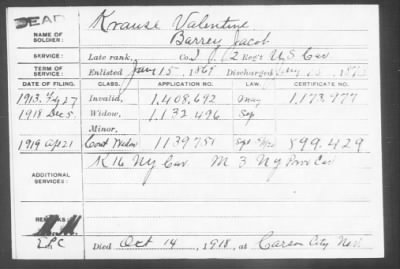 DEAD
Krause Valentine
NAME OF SOLDIER:
Barrey Jacob
SERVICE: Late rank, Co. I & 12 Reg't U.S. Cav
TERM OF SERVICE: Enlisted Jan 15, 1867 Discharged 15, 1872
DATE OF FILING. CLASS. APPLICATION NO. LAW. CERTIFICATE NO.
1913. 27 Invalid, 1,408,692 May 1,173,977
1918 Dec 5. Widow, 1,132,496 Sep
Minor,
1919 Apl 21 Cont Widow 1139751 Sept 899,429
ADDITIONAL SERVICES: K 16 NY Cav M 3 NY Prov Cav
REMARKS:
EPC
Died Oct 14, 1918, at Carson City Nev.